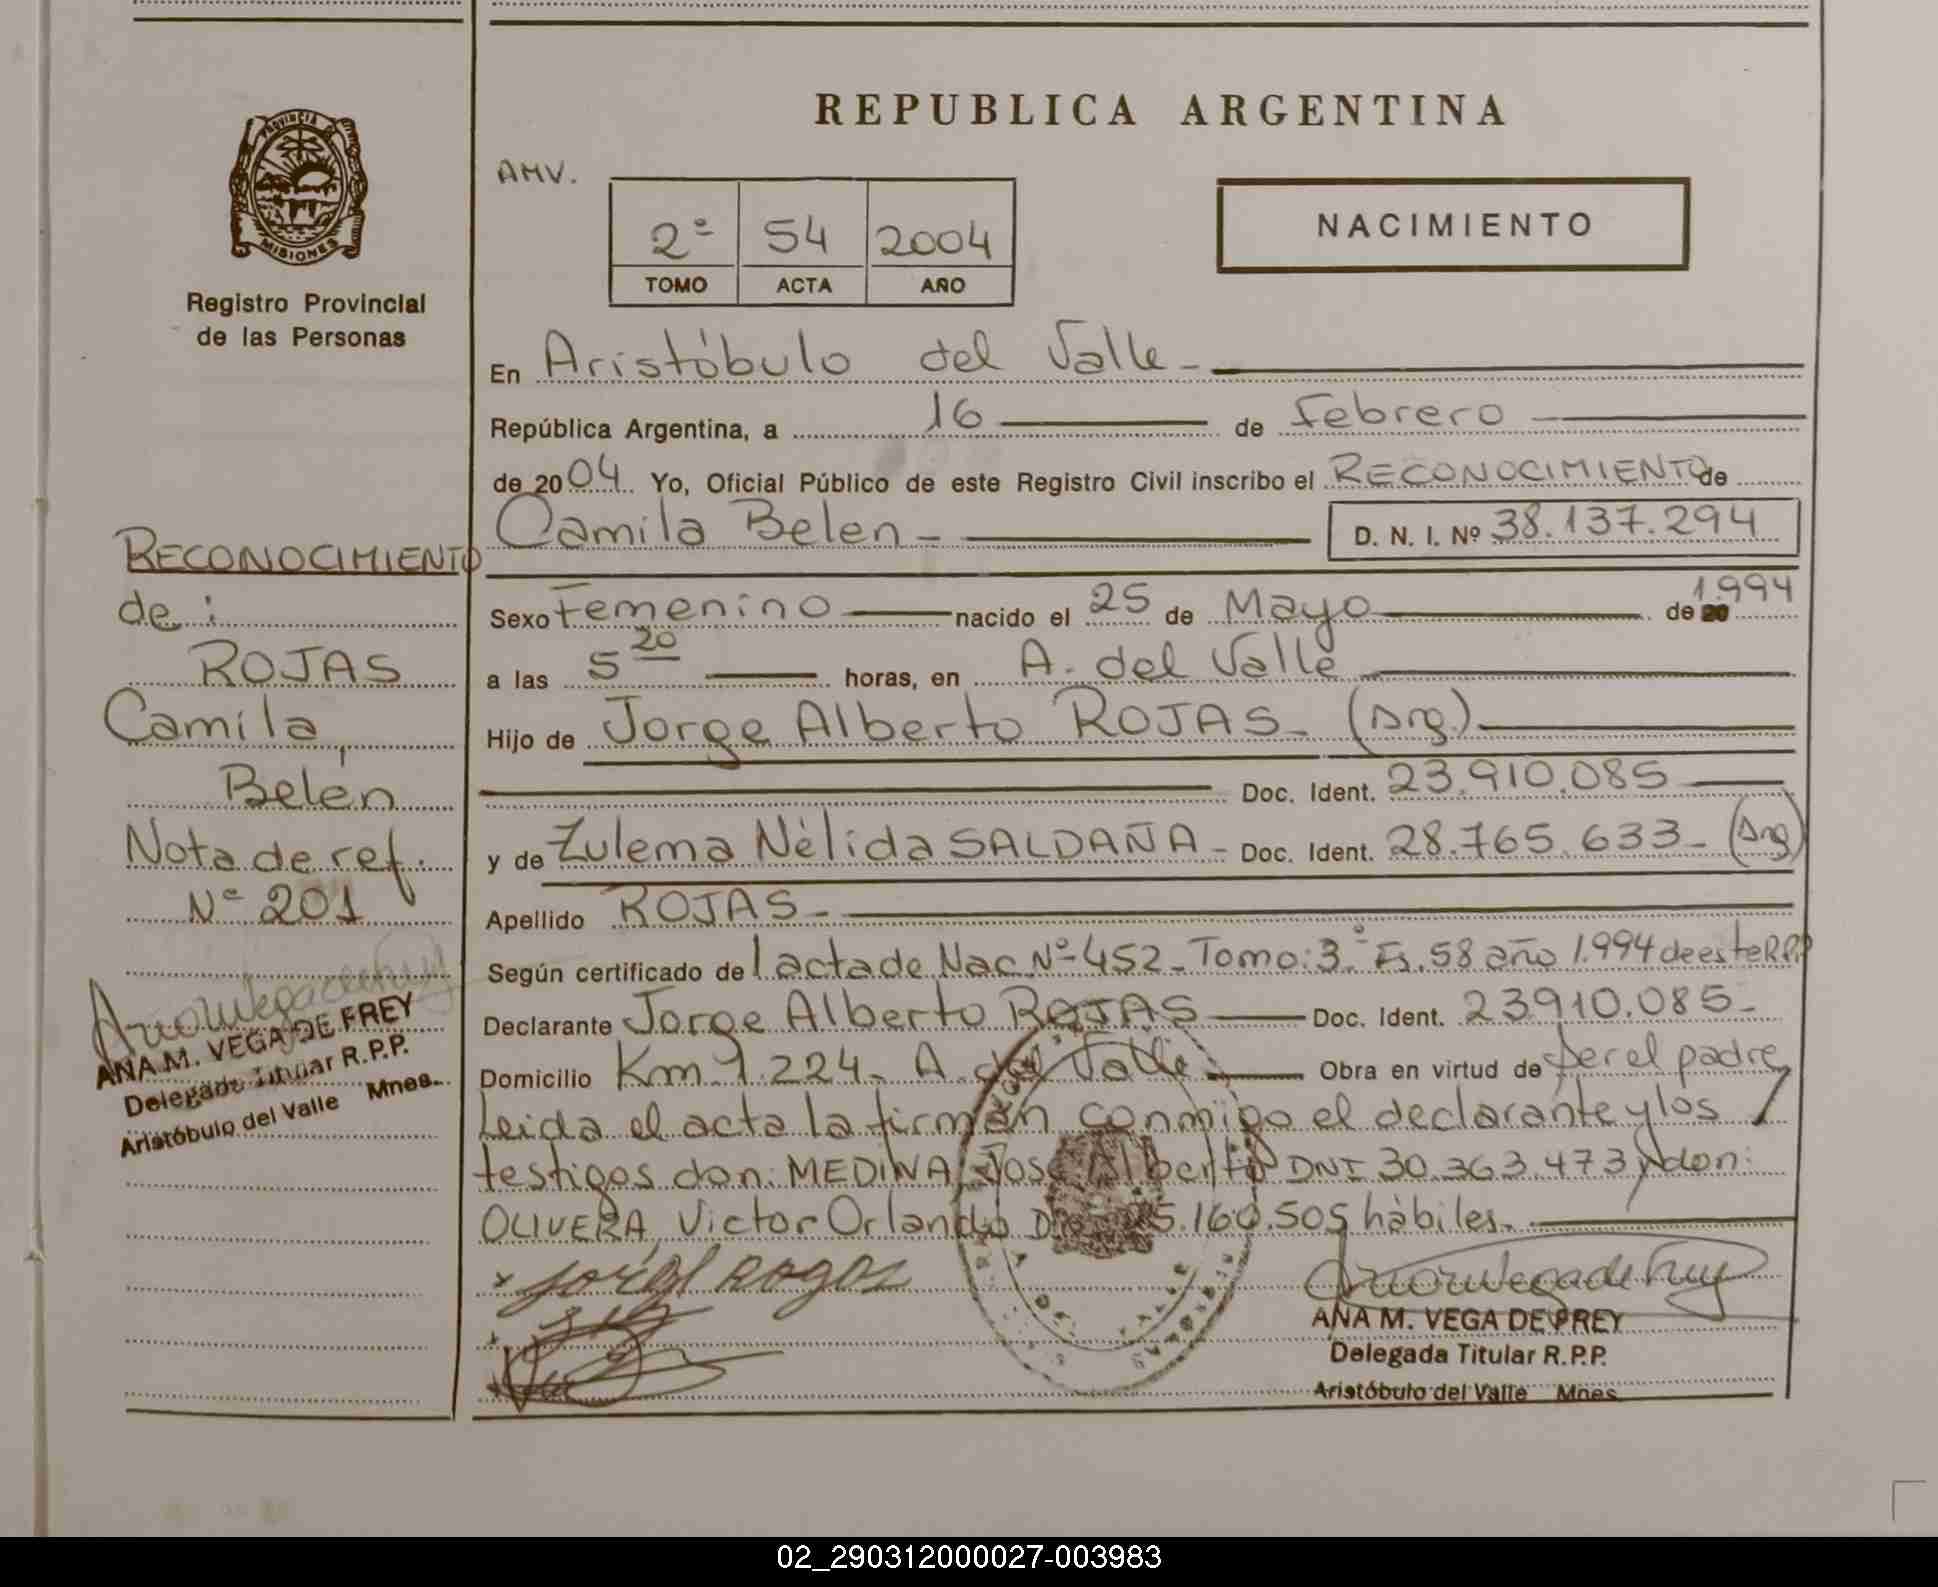 REPUBLICA ARGENTINA
PROVINCIA DE
MISIONES
Registro Provincial
de las Personas
AMV.
2º 54 2004
TOMO ACTA AÑO
NACIMIENTO
En Aristóbulo del Valle-
República Argentina, a 16 de Febrero
de 2004. Yo, Oficial Público de este Registro Civil inscribo el RECONOCIMIENTO de
Camila Belen- D. N. I. Nº 38.137.294
Sexo Femenino nacido el 25 de Mayo de 20 1.994
a las 5 20 horas, en A. del Valle
Hijo de Jorge Alberto ROJAS- (Arg.)
Doc. Ident. 23.910.085
y de Zulema Nélida SALDAÑA- Doc. Ident. 28.765.633- (Arg)
Apellido ROJAS-
Según certificado de l acta de Nac. Nº 452- Tomo: 3º Fs. 58 año 1.994 de este R.P.P
Declarante Jorge Alberto ROJAS Doc. Ident. 23910.085-
Domicilio Km 1.224- A. del Valle Obra en virtud de ser el padre
Leida el acta la firman conmigo el declarante y los
testigos don: MEDINA, José Alberto DNI 30.363.473 y don:
OLIVERA, Victor Orlando 5.160.505 hábiles.
ANA M. VEGA DE FREY
Delegada Titular R.P.P.
Aristóbulo del Valle Mnes.
RECONOCIMIENTO
de:
ROJAS
Camila,
Belén
Nota de ref.
Nº 201
ANA M. VEGA DE FREY
Delegada Titular R.P.P.
Aristóbulo del Valle Mnes.
02_290312000027-003983